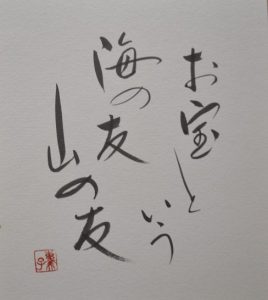 お宝と
いう
海の友
山の友